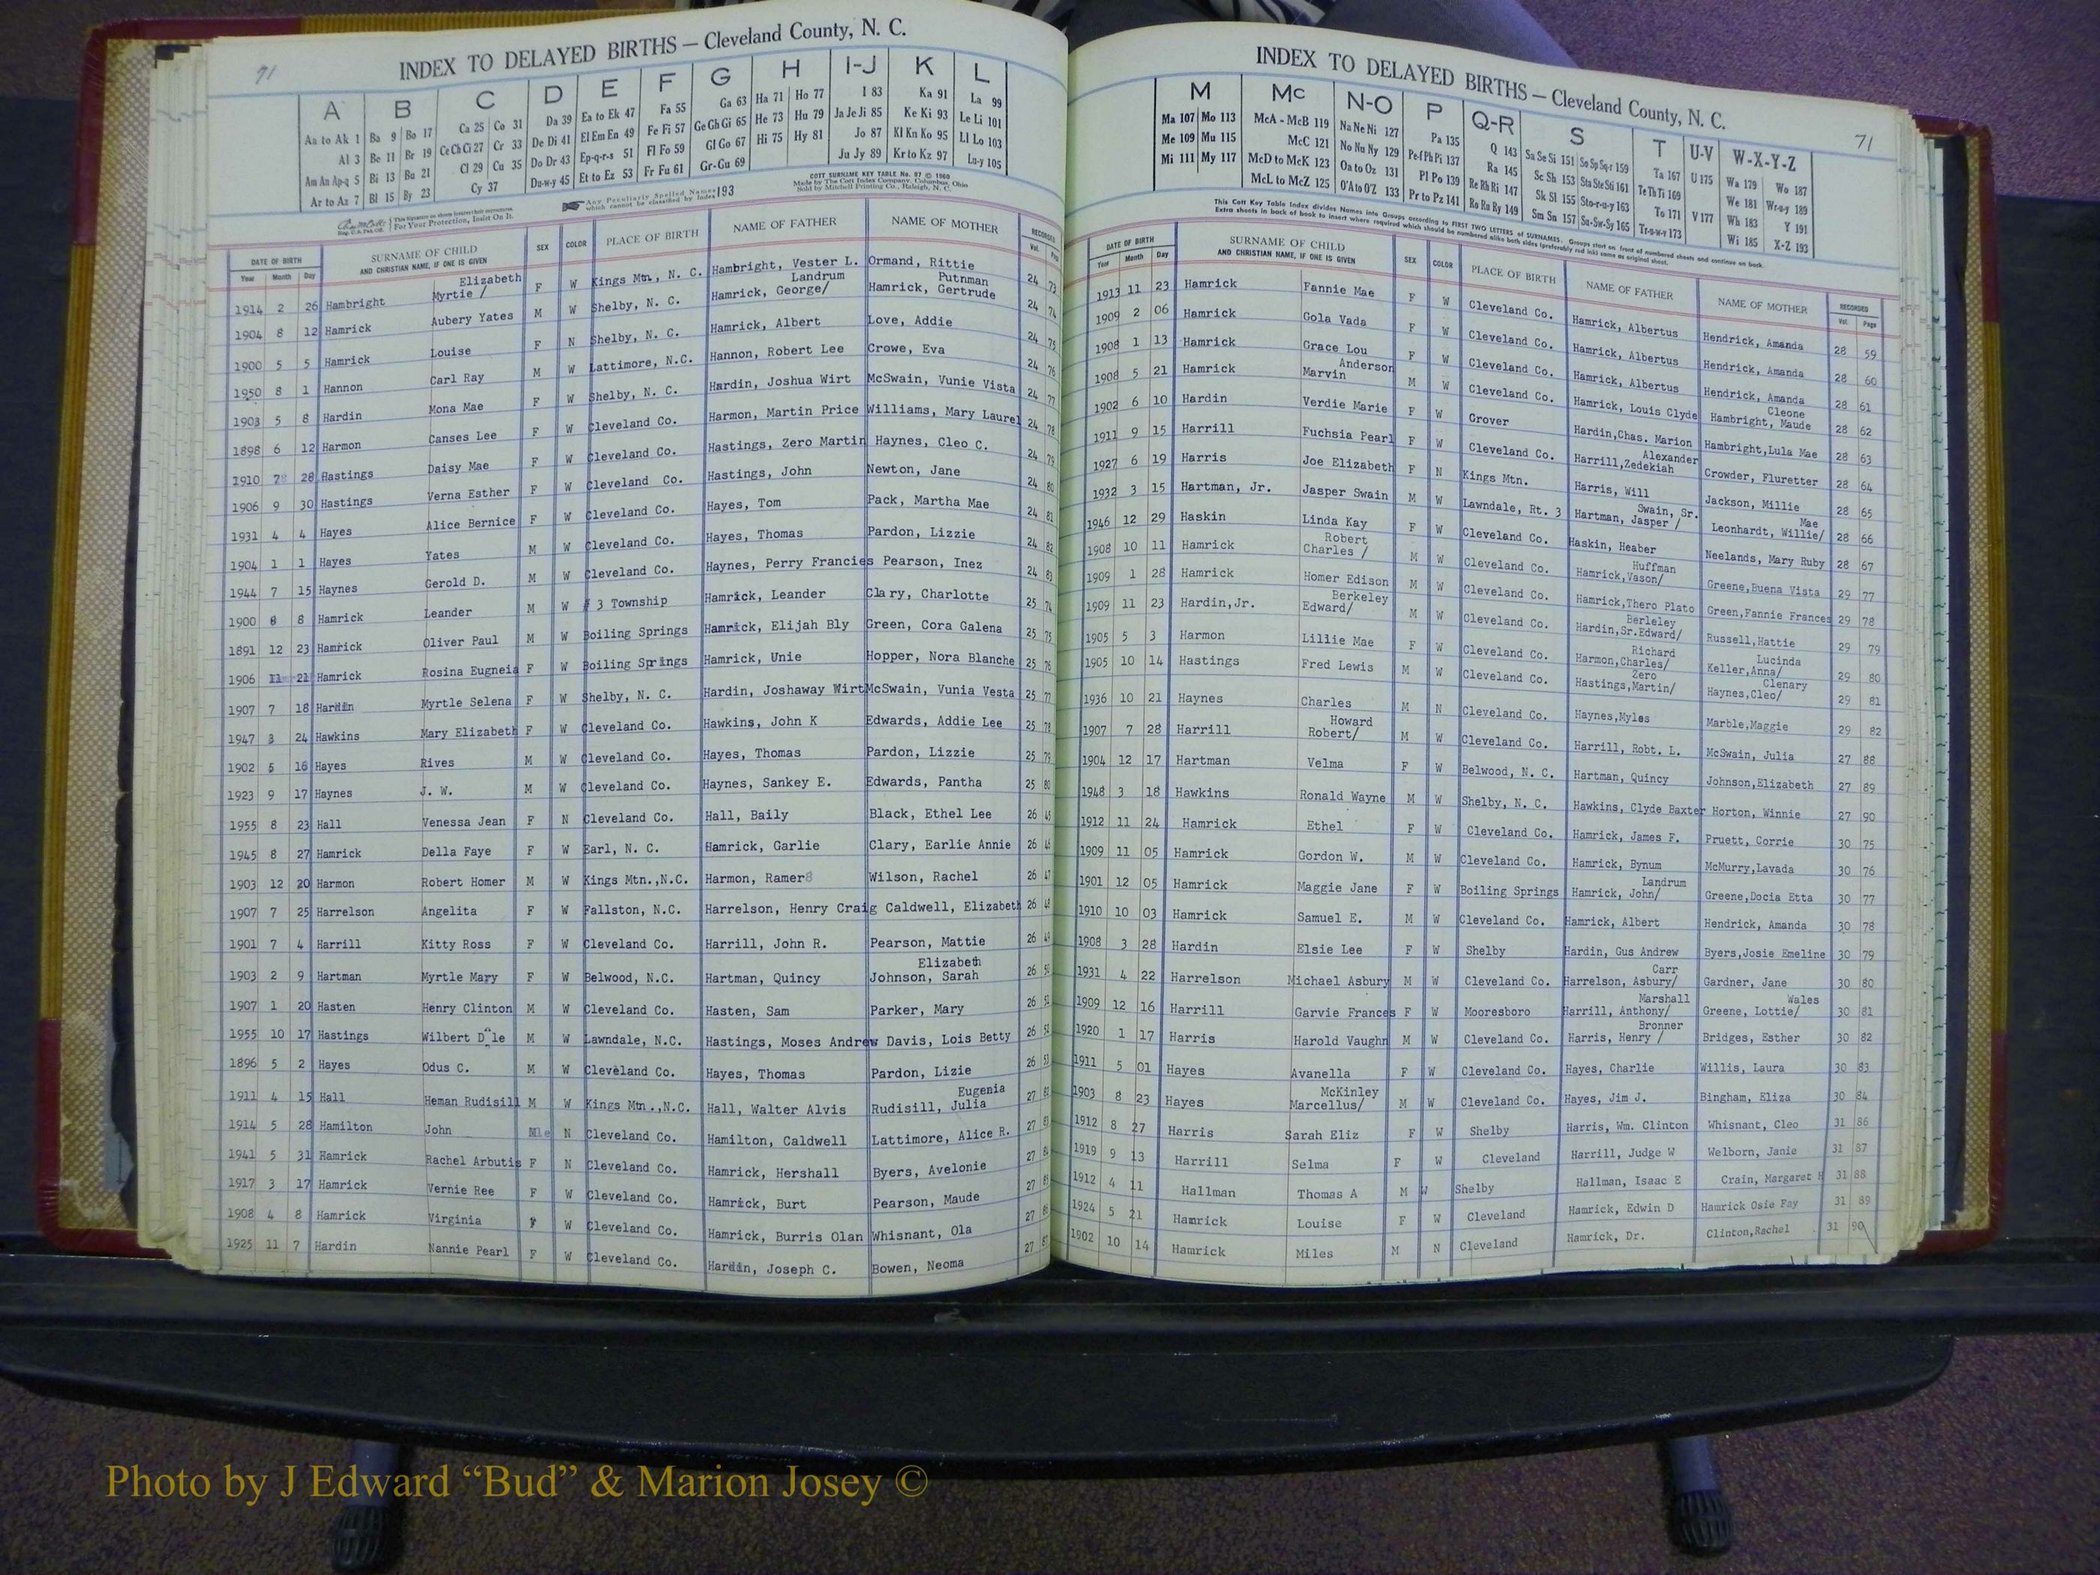 71
INDEX TO DELAYED BIRTHS — Cleveland County, N. C.
A B C D E F G H I-J K L
Aa to Ak 1 Ba 9 Bo 17 Ca 25 Co 31 Da 39 Ea to Ek 47 Fa 55 Ga 63 Ha 71 Ho 77 I 83 Ka 91 La 99
Al 3 Be 11 Br 19 Ce Ch Ci 27 Cr 33 De Di 41 El Em En 49 Fe Fi 57 Ge Gh Gi 65 He 73 Hu 79 Ja Je Ji 85 Ke Ki 93 Le Li 101
Am An Ap-q 5 Bi 13 Bu 21 Cl 29 Cu 35 Do Dr 43 Ep-q-r-s 51 Fl Fo 59 Gl Go 67 Hi 75 Hy 81 Jo 87 Kl Kn Ko 95 Ll Lo 103
Ar to Az 7 Bl 15 By 23 Cy 37 Du-w-y 45 Et to Ez 53 Fr Fu 61 Gr-Gu 69 Ju Jy 89 Kr to Kz 97 Lu-y 105
For Your Protection, Insist On It.
Any Peculiarly Spelled Names which cannot be classified by Index 193
COTT SURNAME KEY TABLE No. 97 © 1960
Made by The Cott Index Company, Columbus, Ohio
Sold by Mitchell Printing Co., Raleigh, N. C.
DATE OF BIRTH SURNAME OF CHILD AND CHRISTIAN NAME, IF ONE IS GIVEN SEX COLOR PLACE OF BIRTH NAME OF FATHER NAME OF MOTHER RECORDED
Year Month Day Vol.
1914 2 26 Hambright Myrtie / Elizabeth F W Kings Mtn., N. C. Hambright, Vester L. Ormand, Rittie 24 73
1904 8 12 Hamrick Aubery Yates M W Shelby, N. C. Hamrick, George/ Landrum Hamrick, Gertrude Putnman 24 74
1900 5 5 Hamrick Louise F N Shelby, N. C. Hamrick, Albert Love, Addie 24 75
1950 8 1 Hannon Carl Ray M W Lattimore, N.C. Hannon, Robert Lee Crowe, Eva 24 76
1903 5 8 Hardin Mona Mae F W Shelby, N. C. Hardin, Joshua Wirt McSwain, Vunie Vista 24 77
1898 6 12 Harmon Canses Lee F W Cleveland Co. Harmon, Martin Price Williams, Mary Laurel 24 78
1910 7 28 Hastings Daisy Mae F W Cleveland Co. Hastings, Zero Martin Haynes, Cleo C. 24 79
1906 9 30 Hastings Verna Esther F W Cleveland Co. Hastings, John Newton, Jane 24 80
1931 4 4 Hayes Alice Bernice F W Cleveland Co. Hayes, Tom Pack, Martha Mae 24 81
1904 1 1 Hayes Yates M W Cleveland Co. Hayes, Thomas Pardon, Lizzie 24 82
1944 7 15 Haynes Gerold D. M W Cleveland Co. Haynes, Perry Francies Pearson, Inez 24 83
1900 8 8 Hamrick Leander M W # 3 Township Hamrick, Leander Clary, Charlotte 25 74
1891 12 23 Hamrick Oliver Paul M W Boiling Springs Hamrick, Elijah Bly Green, Cora Galena 25 75
1906 11 21 Hamrick Rosina Eugneia F W Boiling Springs Hamrick, Unie Hopper, Nora Blanche 25 76
1907 7 18 Hardin Myrtle Selena F W Shelby, N. C. Hardin, Joshaway Wirt McSwain, Vunia Vesta 25 77
1947 3 24 Hawkins Mary Elizabeth F W Cleveland Co. Hawkins, John K Edwards, Addie Lee 25 78
1902 5 16 Hayes Rives M W Cleveland Co. Hayes, Thomas Pardon, Lizzie 25 79
1923 9 17 Haynes J. W. M W Cleveland Co. Haynes, Sankey E. Edwards, Pantha 25 80
1955 8 23 Hall Venessa Jean F N Cleveland Co. Hall, Baily Black, Ethel Lee 26 45
1945 8 27 Hamrick Della Faye F W Earl, N. C. Hamrick, Garlie Clary, Earlie Annie 26 46
1903 12 20 Harmon Robert Homer M W Kings Mtn.,N.C. Harmon, Ramer Wilson, Rachel 26 47
1907 7 25 Harrelson Angelita F W Fallston, N.C. Harrelson, Henry Craig Caldwell, Elizabeth 26 48
1901 7 4 Harrill Kitty Ross F W Cleveland Co. Harrill, John R. Pearson, Mattie 26 49
1903 2 9 Hartman Myrtle Mary F W Belwood, N.C. Hartman, Quincy Johnson, Sarah Elizabeth 26 50
1907 1 20 Hasten Henry Clinton M W Cleveland Co. Hasten, Sam Parker, Mary 26 51
1955 10 17 Hastings Wilbert Dale M W Lawndale, N.C. Hastings, Moses Andrew Davis, Lois Betty 26 52
1896 5 2 Hayes Odus C. M W Cleveland Co. Hayes, Thomas Pardon, Lizie 26 53
1911 4 15 Hall Heman Rudisill M W Kings Mtn.,N.C. Hall, Walter Alvis Rudisill, Julia Eugenia 27 82
1914 5 28 Hamilton John Mle N Cleveland Co. Hamilton, Caldwell Lattimore, Alice R. 27 83
1941 5 31 Hamrick Rachel Arbutis F N Cleveland Co. Hamrick, Hershall Byers, Avelonie 27 84
1917 3 17 Hamrick Vernie Ree F W Cleveland Co. Hamrick, Burt Pearson, Maude 27 85
1908 4 8 Hamrick Virginia F W Cleveland Co. Hamrick, Burris Olan Whisnant, Ola 27 86
1925 11 7 Hardin Nannie Pearl F W Cleveland Co. Hardin, Joseph C. Bowen, Neoma 27 87
INDEX TO DELAYED BIRTHS — Cleveland County, N. C.
71
M Mc N-O P Q-R S T U-V W-X-Y-Z
Ma 107 Mo 113 McA - McB 119 Na Ne Ni 127 Pa 135 Q 143 Sa Se Si 151 So Sp Sq-r 159 Ta 167 U 175 Wa 179 Wo 187
Me 109 Mu 115 McC 121 No Nu Ny 129 Pe-f Ph Pi 137 Ra 145 Sc Sh 153 Sta Ste Sti 161 Te Th Ti 169 We 181 Wr-u-y 189
Mi 111 My 117 McD to McK 123 Oa to Oz 131 Pl Po 139 Re Rh Ri 147 Sk Sl 155 Sto-r-u-y 163 To 171 V 177 Wh 183 Y 191
McL to McZ 125 O'A to O'Z 133 Pr to Pz 141 Ro Ru Ry 149 Sm Sn 157 Su-Sw-Sy 165 Tr-u-w-y 173 Wi 185 X-Z 193
This Cott Key Table Index divides Names into Groups according to FIRST TWO LETTERS of SURNAMES. Groups start on front of numbered sheets and continue on back.
Extra sheets in back of book to insert where required which should be numbered alike both sides (preferably red ink) same as original sheet.
DATE OF BIRTH SURNAME OF CHILD AND CHRISTIAN NAME, IF ONE IS GIVEN SEX COLOR PLACE OF BIRTH NAME OF FATHER NAME OF MOTHER RECORDED
Year Month Day Vol. Page
1913 11 23 Hamrick Fannie Mae F W Cleveland Co. Hamrick, Albertus Hendrick, Amanda 28 59
1909 2 06 Hamrick Gola Vada F W Cleveland Co. Hamrick, Albertus Hendrick, Amanda 28 60
1908 1 13 Hamrick Grace Lou F W Cleveland Co. Hamrick, Albertus Hendrick, Amanda 28 61
1908 5 21 Hamrick Marvin Anderson M W Cleveland Co. Hamrick, Louis Clyde Hambright, Maude Cleone 28 62
1902 6 10 Hardin Verdie Marie F W Grover Hardin,Chas. Marion Hambright,Lula Mae 28 63
1911 9 15 Harrill Fuchsia Pearl F W Cleveland Co. Harrill,Zedekiah Alexander Crowder, Fluretter 28 64
1927 6 19 Harris Joe Elizabeth F N Kings Mtn. Harris, Will Jackson, Millie 28 65
1932 3 15 Hartman, Jr. Jasper Swain M W Lawndale, Rt. 3 Hartman, Jasper / Swain, Sr. Leonhardt, Willie/ Mae 28 66
1946 12 29 Haskin Linda Kay F W Cleveland Co. Haskin, Heaber Neelands, Mary Ruby 28 67
1908 10 11 Hamrick Charles / Robert M W Cleveland Co. Hamrick,Vason/ Huffman Greene,Buena Vista 29 77
1909 1 28 Hamrick Homer Edison M W Cleveland Co. Hamrick,Thero Plato Green,Fannie Frances 29 78
1909 11 23 Hardin,Jr. Edward/ Berkeley M W Cleveland Co. Hardin,Sr.Edward/ Berleley Russell,Hattie 29 79
1905 5 3 Harmon Lillie Mae F W Cleveland Co. Harmon,Charles/ Richard Keller,Anna/ Lucinda 29 80
1905 10 14 Hastings Fred Lewis M W Cleveland Co. Hastings,Martin/ Zero Haynes,Cleo/ Clenary 29 81
1936 10 21 Haynes Charles M N Cleveland Co. Haynes,Myles Marble,Maggie 29 82
1907 7 28 Harrill Robert/ Howard M W Cleveland Co. Harrill, Robt. L. McSwain, Julia 27 88
1904 12 17 Hartman Velma F W Belwood, N. C. Hartman, Quincy Johnson,Elizabeth 27 89
1948 3 18 Hawkins Ronald Wayne M W Shelby, N. C. Hawkins, Clyde Baxter Horton, Winnie 27 90
1912 11 24 Hamrick Ethel F W Cleveland Co. Hamrick, James F. Pruett, Corrie 30 75
1909 11 05 Hamrick Gordon W. M W Cleveland Co. Hamrick, Bynum McMurry,Lavada 30 76
1901 12 05 Hamrick Maggie Jane F W Boiling Springs Hamrick, John/ Landrum Greene,Docia Etta 30 77
1910 10 03 Hamrick Samuel E. M W Cleveland Co. Hamrick, Albert Hendrick, Amanda 30 78
1908 3 28 Hardin Elsie Lee F W Shelby Hardin, Gus Andrew Byers,Josie Emeline 30 79
1931 4 22 Harrelson Michael Asbury M W Cleveland Co. Harrelson, Asbury/ Carr Gardner, Jane 30 80
1909 12 16 Harrill Garvie Frances F W Mooresboro Harrill, Anthony/ Marshall Greene, Lottie/ Wales 30 81
1920 1 17 Harris Harold Vaughn M W Cleveland Co. Harris, Henry / Bronner Bridges, Esther 30 82
1911 5 01 Hayes Avanella F W Cleveland Co. Hayes, Charlie Willis, Laura 30 83
1903 8 23 Hayes Marcellus/ McKinley M W Cleveland Co. Hayes, Jim J. Bingham, Eliza 30 84
1912 8 27 Harris Sarah Eliz F W Shelby Harris, Wm. Clinton Whisnant, Cleo 31 86
1919 9 13 Harrill Selma F W Cleveland Harrill, Judge W Welborn, Janie 31 87
1912 4 11 Hallman Thomas A M W Shelby Hallman, Isaac E Crain, Margaret H 31 88
1924 5 21 Hamrick Louise F W Cleveland Hamrick, Edwin D Hamrick Osie Fay 31 89
1902 10 14 Hamrick Miles M N Cleveland Hamrick, Dr. Clinton,Rachel 31 90
Photo by J Edward “Bud” & Marion Josey ©